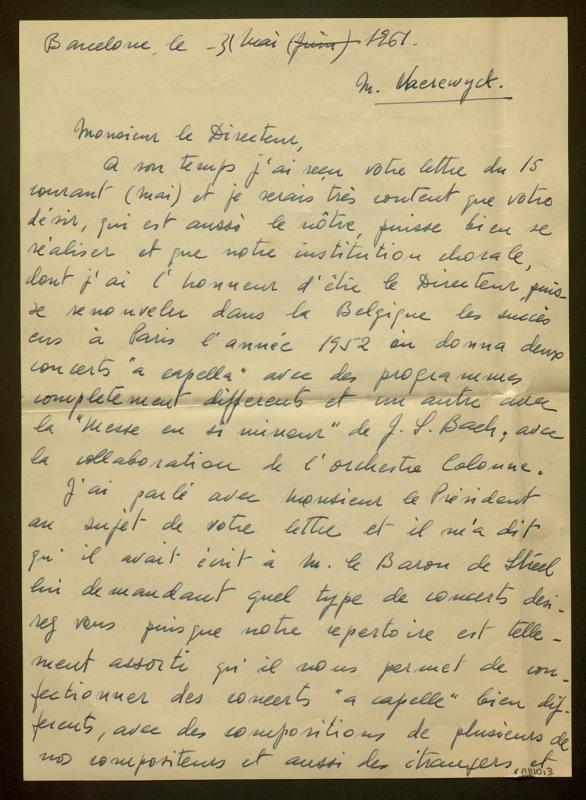 Barcelone, le 31 Mai (Juin) 1961.
M. Vaerewyck.
Monsieur le Directeur,
A son temps j'ai reçu votre lettre du 15
courant (mai) et je serais très content que votre
désir, qui est aussi le nôtre, puisse bien se
réaliser et que notre institution chorale,
dont j'ai l'honneur d'être le Directeur, puis-
se renouveler dans la Belgique les succès
eus à Paris l'année 1952 où donna deux
concerts "a capella" avec des programmes
complètement differents et un autre avec
la "Messe en si mineur" de J. S. Bach, avec
la collaboration de l'orchestre Colonne.
J'ai parlé avec Monsieur le Président
au sujèt de votre lettre et il m'a dit
qu'il avait écrit à M. le Baron de Steel
lui demandant quel type de concerts dési-
rez vous puisque notre repertoire est telle-
ment assorti qu'il nous permet de con-
fectionner des concerts "a capella" bien dif-
ferents, avec des compositions de plusieurs de
nos compositeurs et aussi des étrangers et